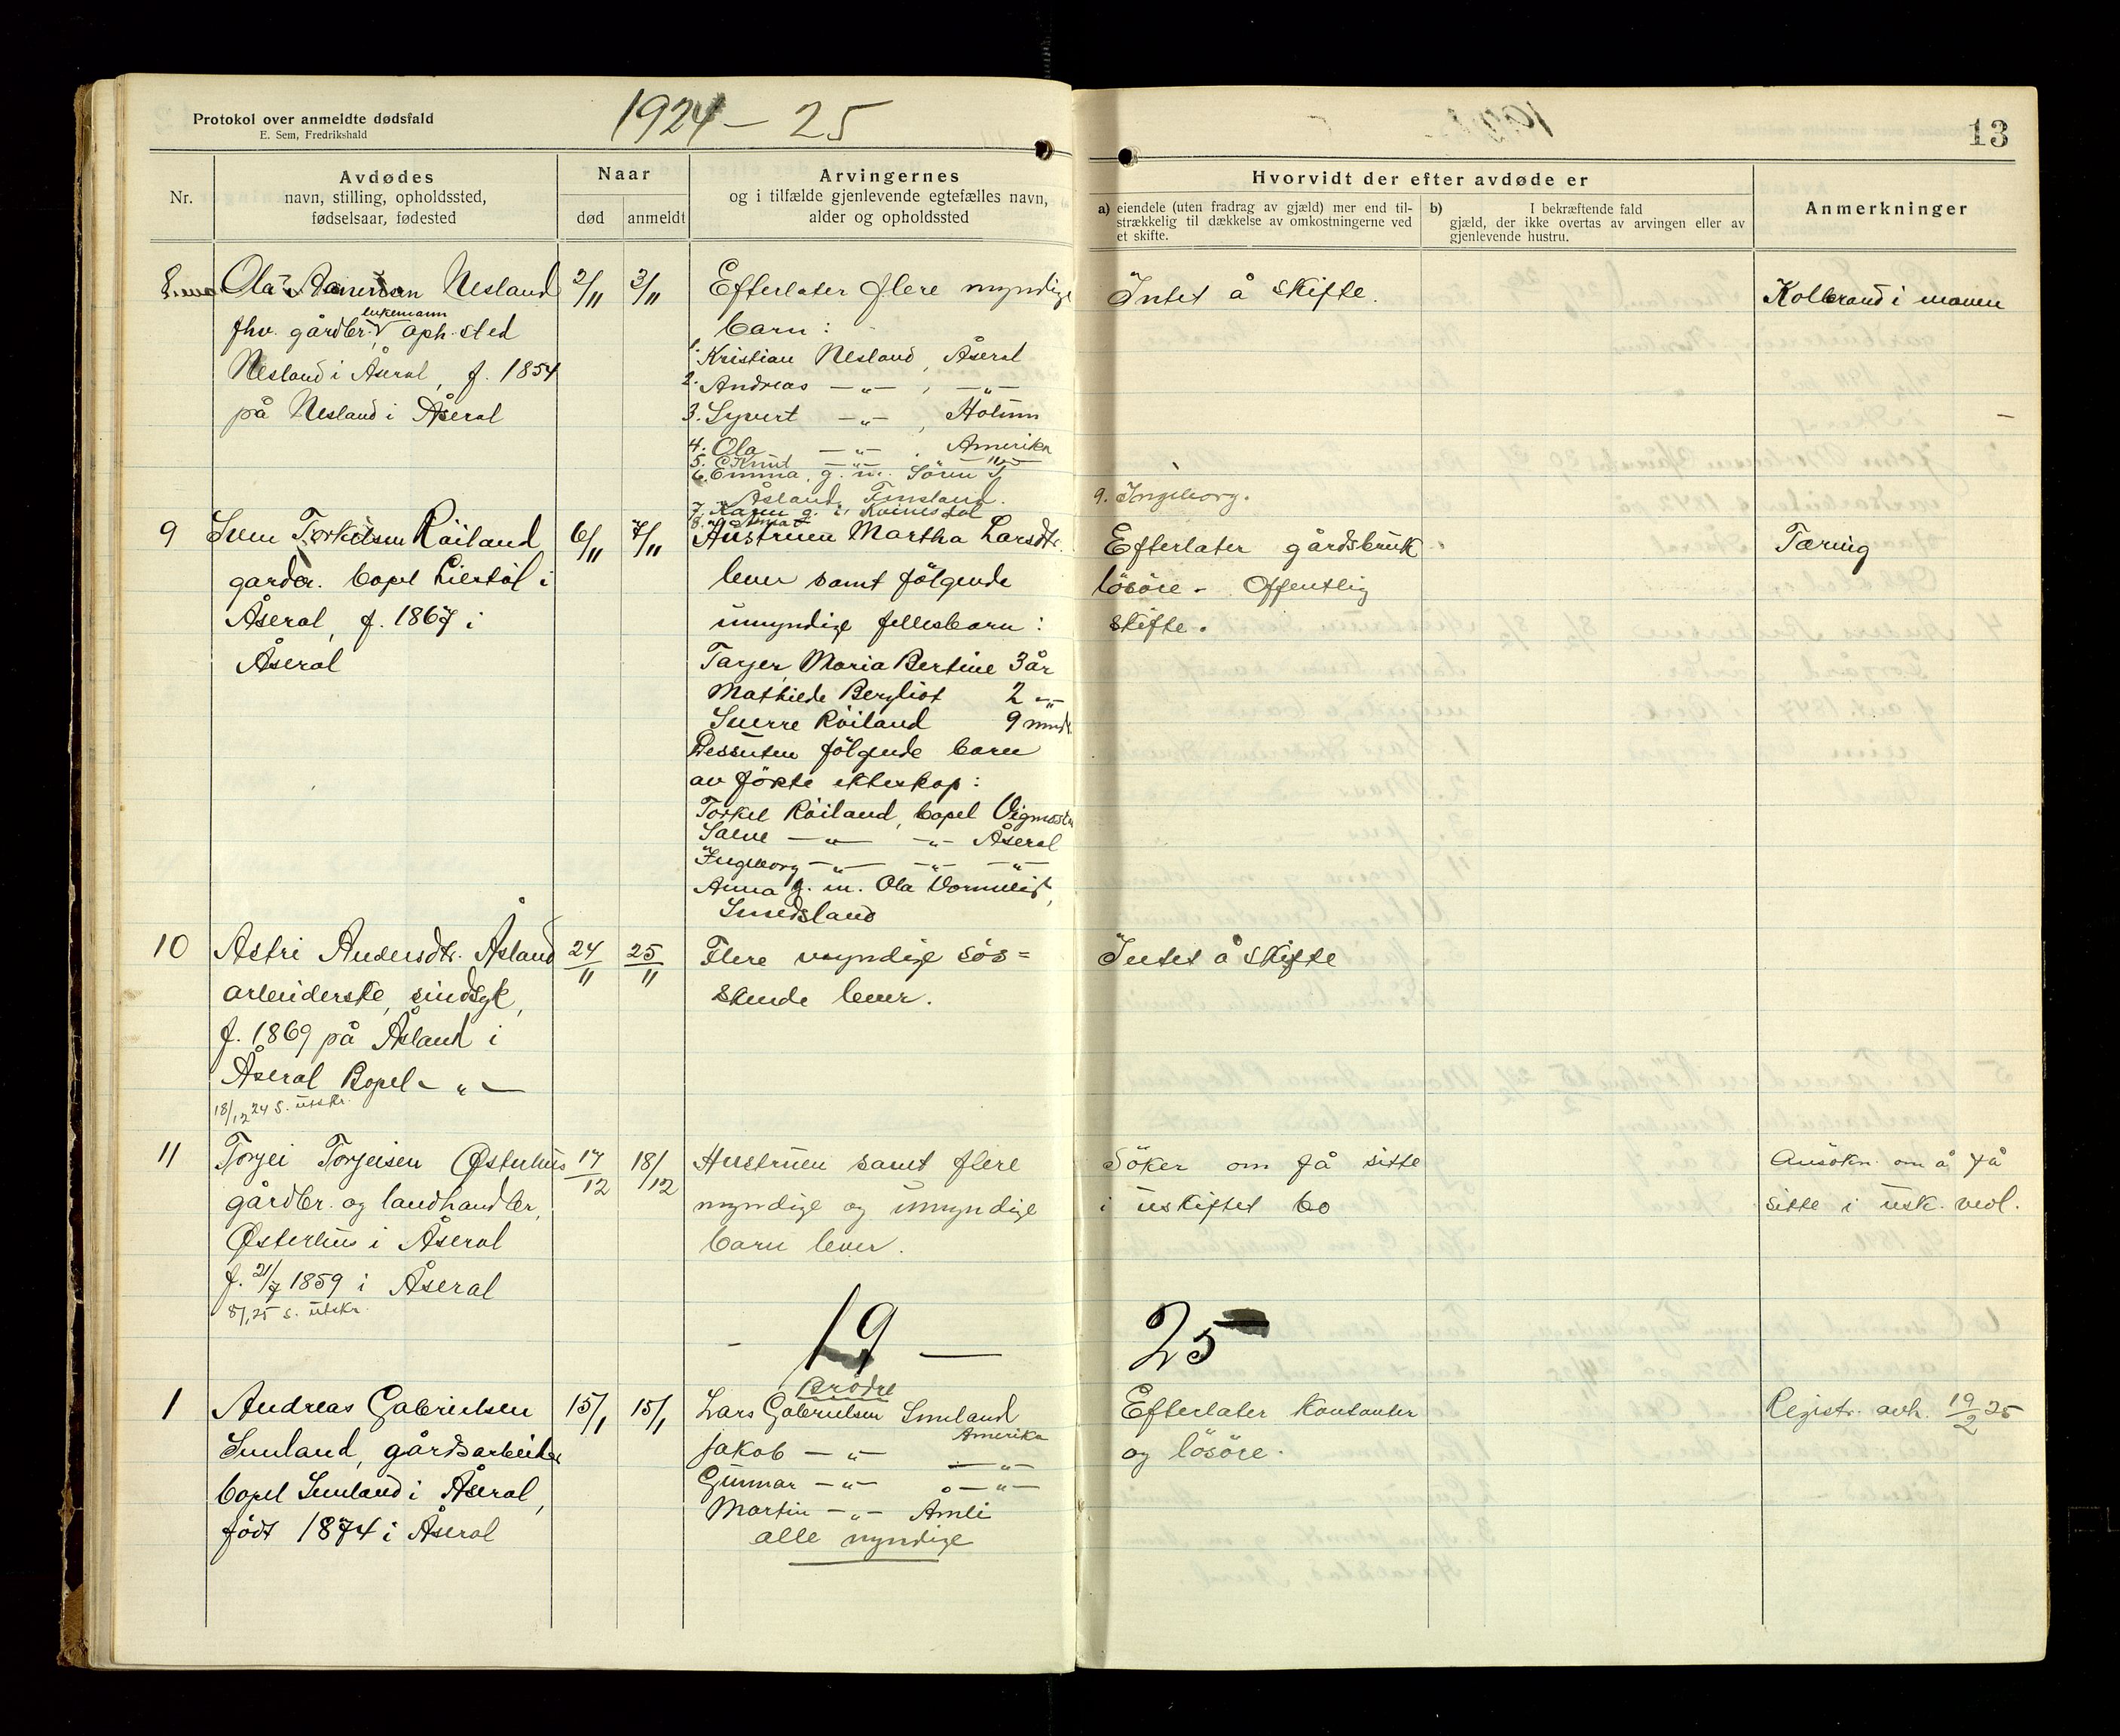 Protokol over anmeldte dødsfald
E. Sem, Fredrikshald
1924 – 25
13
Nr.
Avdødes
navn, stilling, opholdssted,
fødselsaar, fødested
Naar
død
anmeldt
Arvingernes
og i tilfælde gjenlevende egtefælles navn,
alder og opholdssted
Hvorvidt der efter avdøde er
a) eiendele (uten fradrag av gjæld) mer end til-
strækkelig til dækkelse av omkostningerne ved
et skifte.
b) I bekræftende fald
gjæld, der ikke overtas av arvingen eller av
gjenlevende hustru.
Anmerkninger
Ola Nesland
enkemann
fhv. gårdbr. oph.sted
Nesland i Åseral, f. 1854
på Nesland i Åseral
2/11
3/11
Efterlater flere myndige
barn:
1. Kristian Nesland, Åseral
2. Andreas —"— , —"—
3. Syvert —"— , Holum
4. Ola —"— , Amerika
5. Knut —"— —"—
6. Emma g. m. Sören
Åsland, Finsland.
7. Karen g. i Kvinesdal
8. Anna
9. Ingeborg.
Intet å skifte.
Kolbrand i maven
9
Sven Torkelsen Röiland
gardbr. bopel Liestöl i
Åseral, f. 1867 i
Åseral
6/11
7/11
Hustruen Martha Larsdtr.
lever samt fölgende
umyndige fellesbarn:
Tarjer Maria Bertine 3 år
Mathilde Bergliot 2 —"—
Sverre Röiland 9 mndr.
Dessuten fölgende barn
av förste ekteskap:
Torkel Röiland, bopel Vigmostad
Salve —"— —"— Åseral
Ingeborg —"— —"— —"—
Anna g. m. Ola
Smedsland
Efterlater gårdsbruk
lösöre. Offentlig
skifte.
Tæring
10
Astri Andersdtr. Åsland
arbeiderske, sindsyk,
f. 1869 på Åsland i
Åseral Bopel —"—
18/12 24 s. utskr.
24/11
25/11
Flere myndige sös=
kende lever.
Intet å skifte
11
Torjei Torjeisen Østerhus
gårdbr. og landhandler,
Østerhus i Åseral
f. 21/7 1859 i Åseral
8/1 25 s. utskr.
17/12
18/12
Hustruen samt flere
myndige og umyndige
barn lever.
Söker om få sitte
i uskiftet bo
Ansökn. om å få
sitte i usk. vedl.
– 19 — 25
1
Andreas Gabrielsen
Smeland, gårdsarbeider
bopel Smeland i Åseral,
födt 1874 i Åseral
15/1
15/1
Brödre
Lars Gabrielsen Smeland
Amerika
Jakob —"— —"—
Gunnar —"— —"—
Martin —"— Åmli
alle myndige
Efterlater kontanter
og lösöre.
Registr. avh. 19/2 25